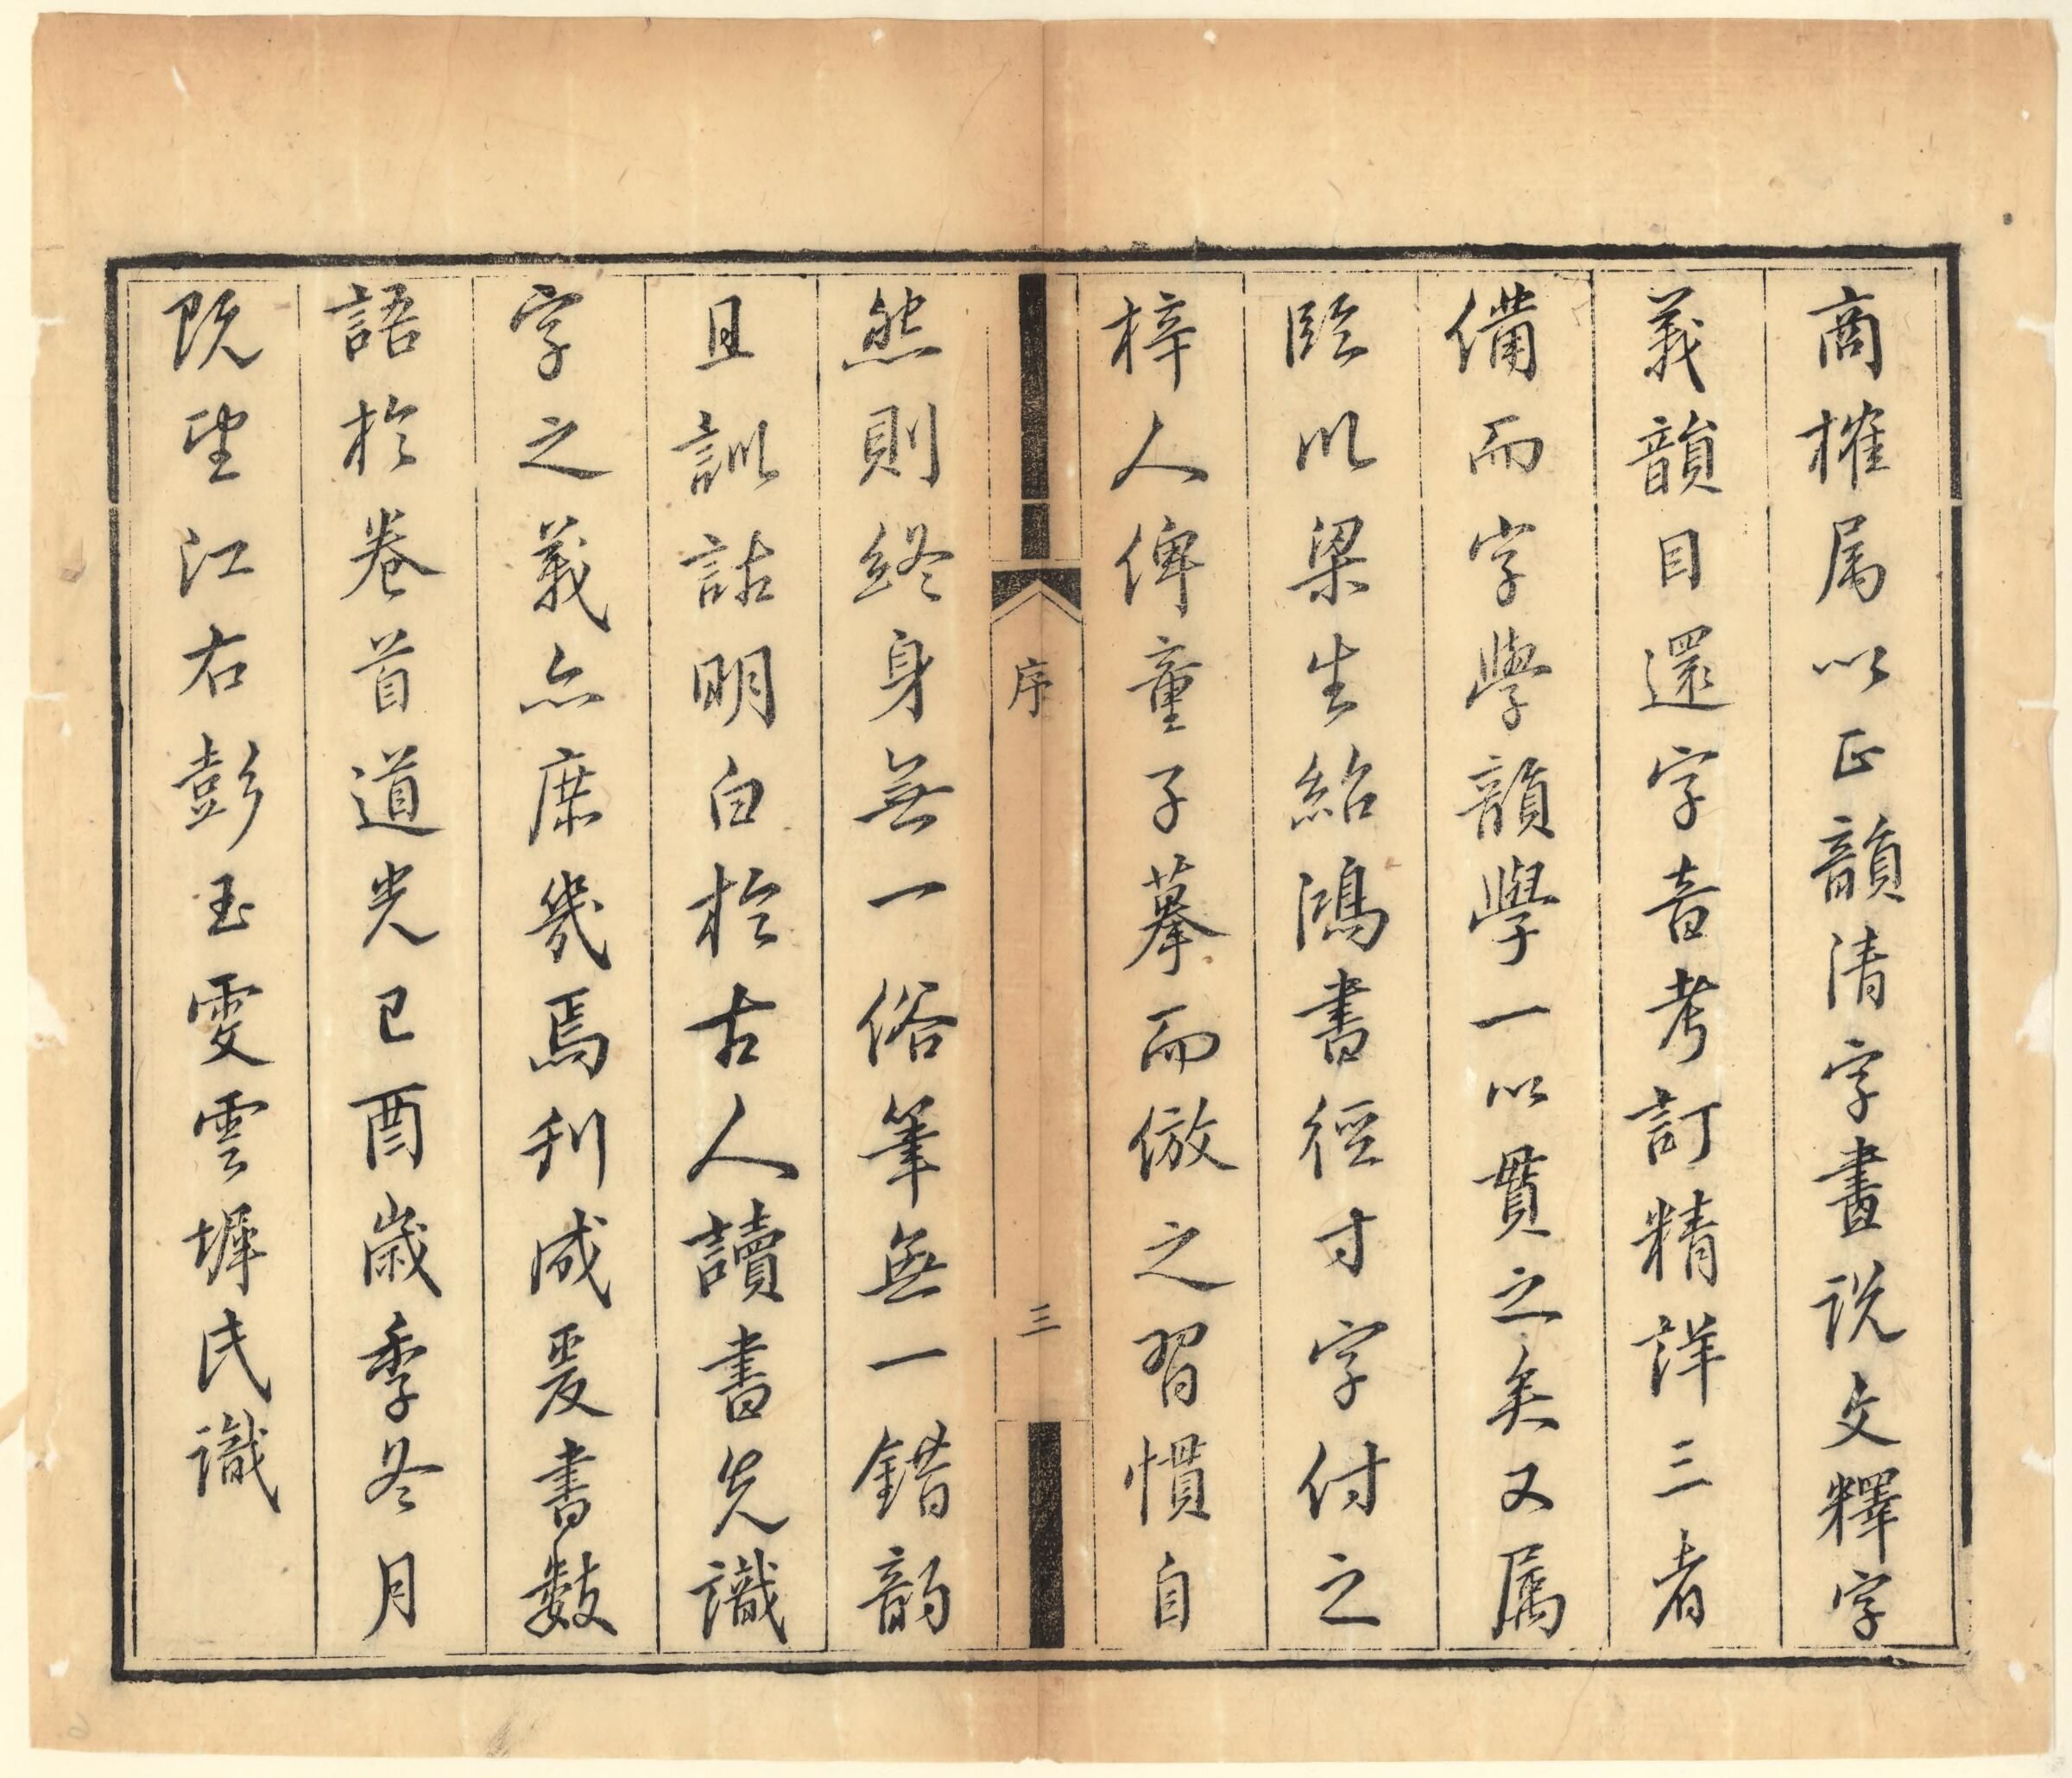 商榷属以正韻清字畫說文釋字
義韻目還字音考訂精詳三者
備而字學韻學一以貫之矣又属
臨以梁生紹鴻書徑寸字付之
梓人俾童子摹而倣之習慣自
序
三
然則終身無一俗筆無一錯韵
且訓詁明白於古人讀書先識
字之義亦庶幾焉刊成爰書數
語於卷首道光己酉歲季冬月
既望江右彭玉雯雲墀氏識